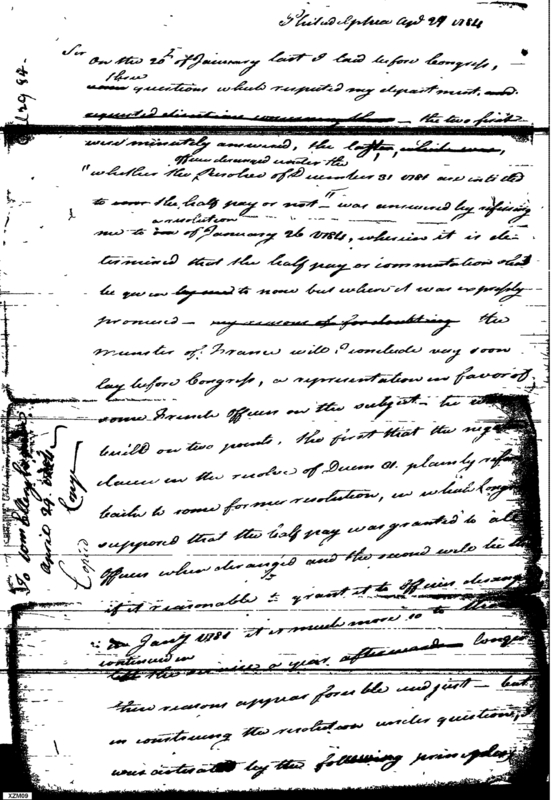 Philadelphia Apl 29 1784
Sir
On the 20th of January last I laid before Congress,
three
questions which respected my department and
requested directions concerning them - the two first
were minutely answered, the last,
offices deranged under the
"whether the Resolve of December 31 1781 are intitled
to the half pay or not" was answered by refering
a resolution
me to of January 26 1784, wherein it is de-
termined that the half pay or commutation shall
be given to none but where it was expressly
promised - my reasons for doubting the
Minister of France will I conclude very soon
lay before Congress, a representation in favor of
some French Officers on the subject - he
build on two points, the first that the
clause in the resolve of Decem plainly
back to some former resolution, in which
supposed that the half pay was granted to all
Officers when deranged and the second will be
if it reasonable to grant it to Officers
in Jany 1781 it is much more so to
continued in
the service a year afterwards longer
these reasons appear forcible and just - but
in construing the resolution under question, I
was actuated by the following principles
April 29. 1784
Copied
XZM09